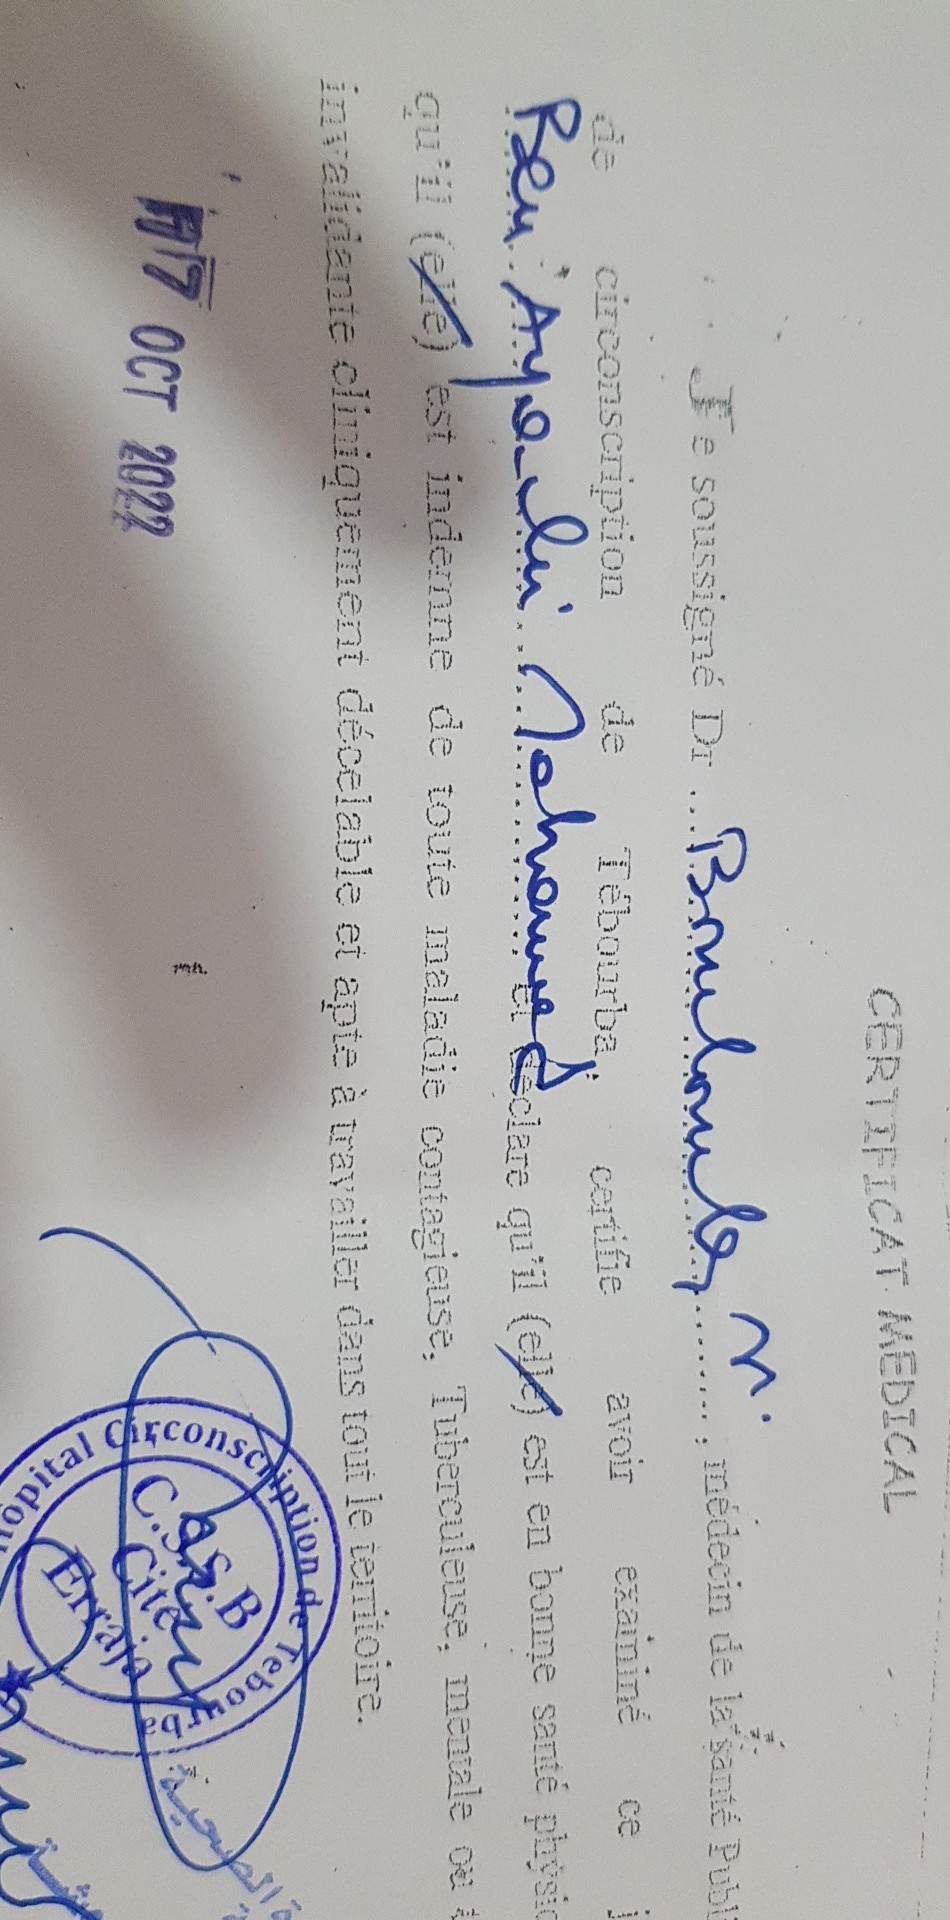 CERTIFICAT MEDICAL
Je soussigné Dr ............ , médecin de la Santé
de circonscription de Tébourba, certifie avoir examiné ce
Ben Ayachi Mohamed et déclare qu'il (elle) est en bonne santé
qu'il (elle) est indemne de toute maladie contagieuse, Tuberculeuse, mentale ou
invalidante cliniquement décelable et apte à travailler dans tout le territoire.
OCT 2022
Hopital Circonscription de Tebourba
C.S.B
Cité